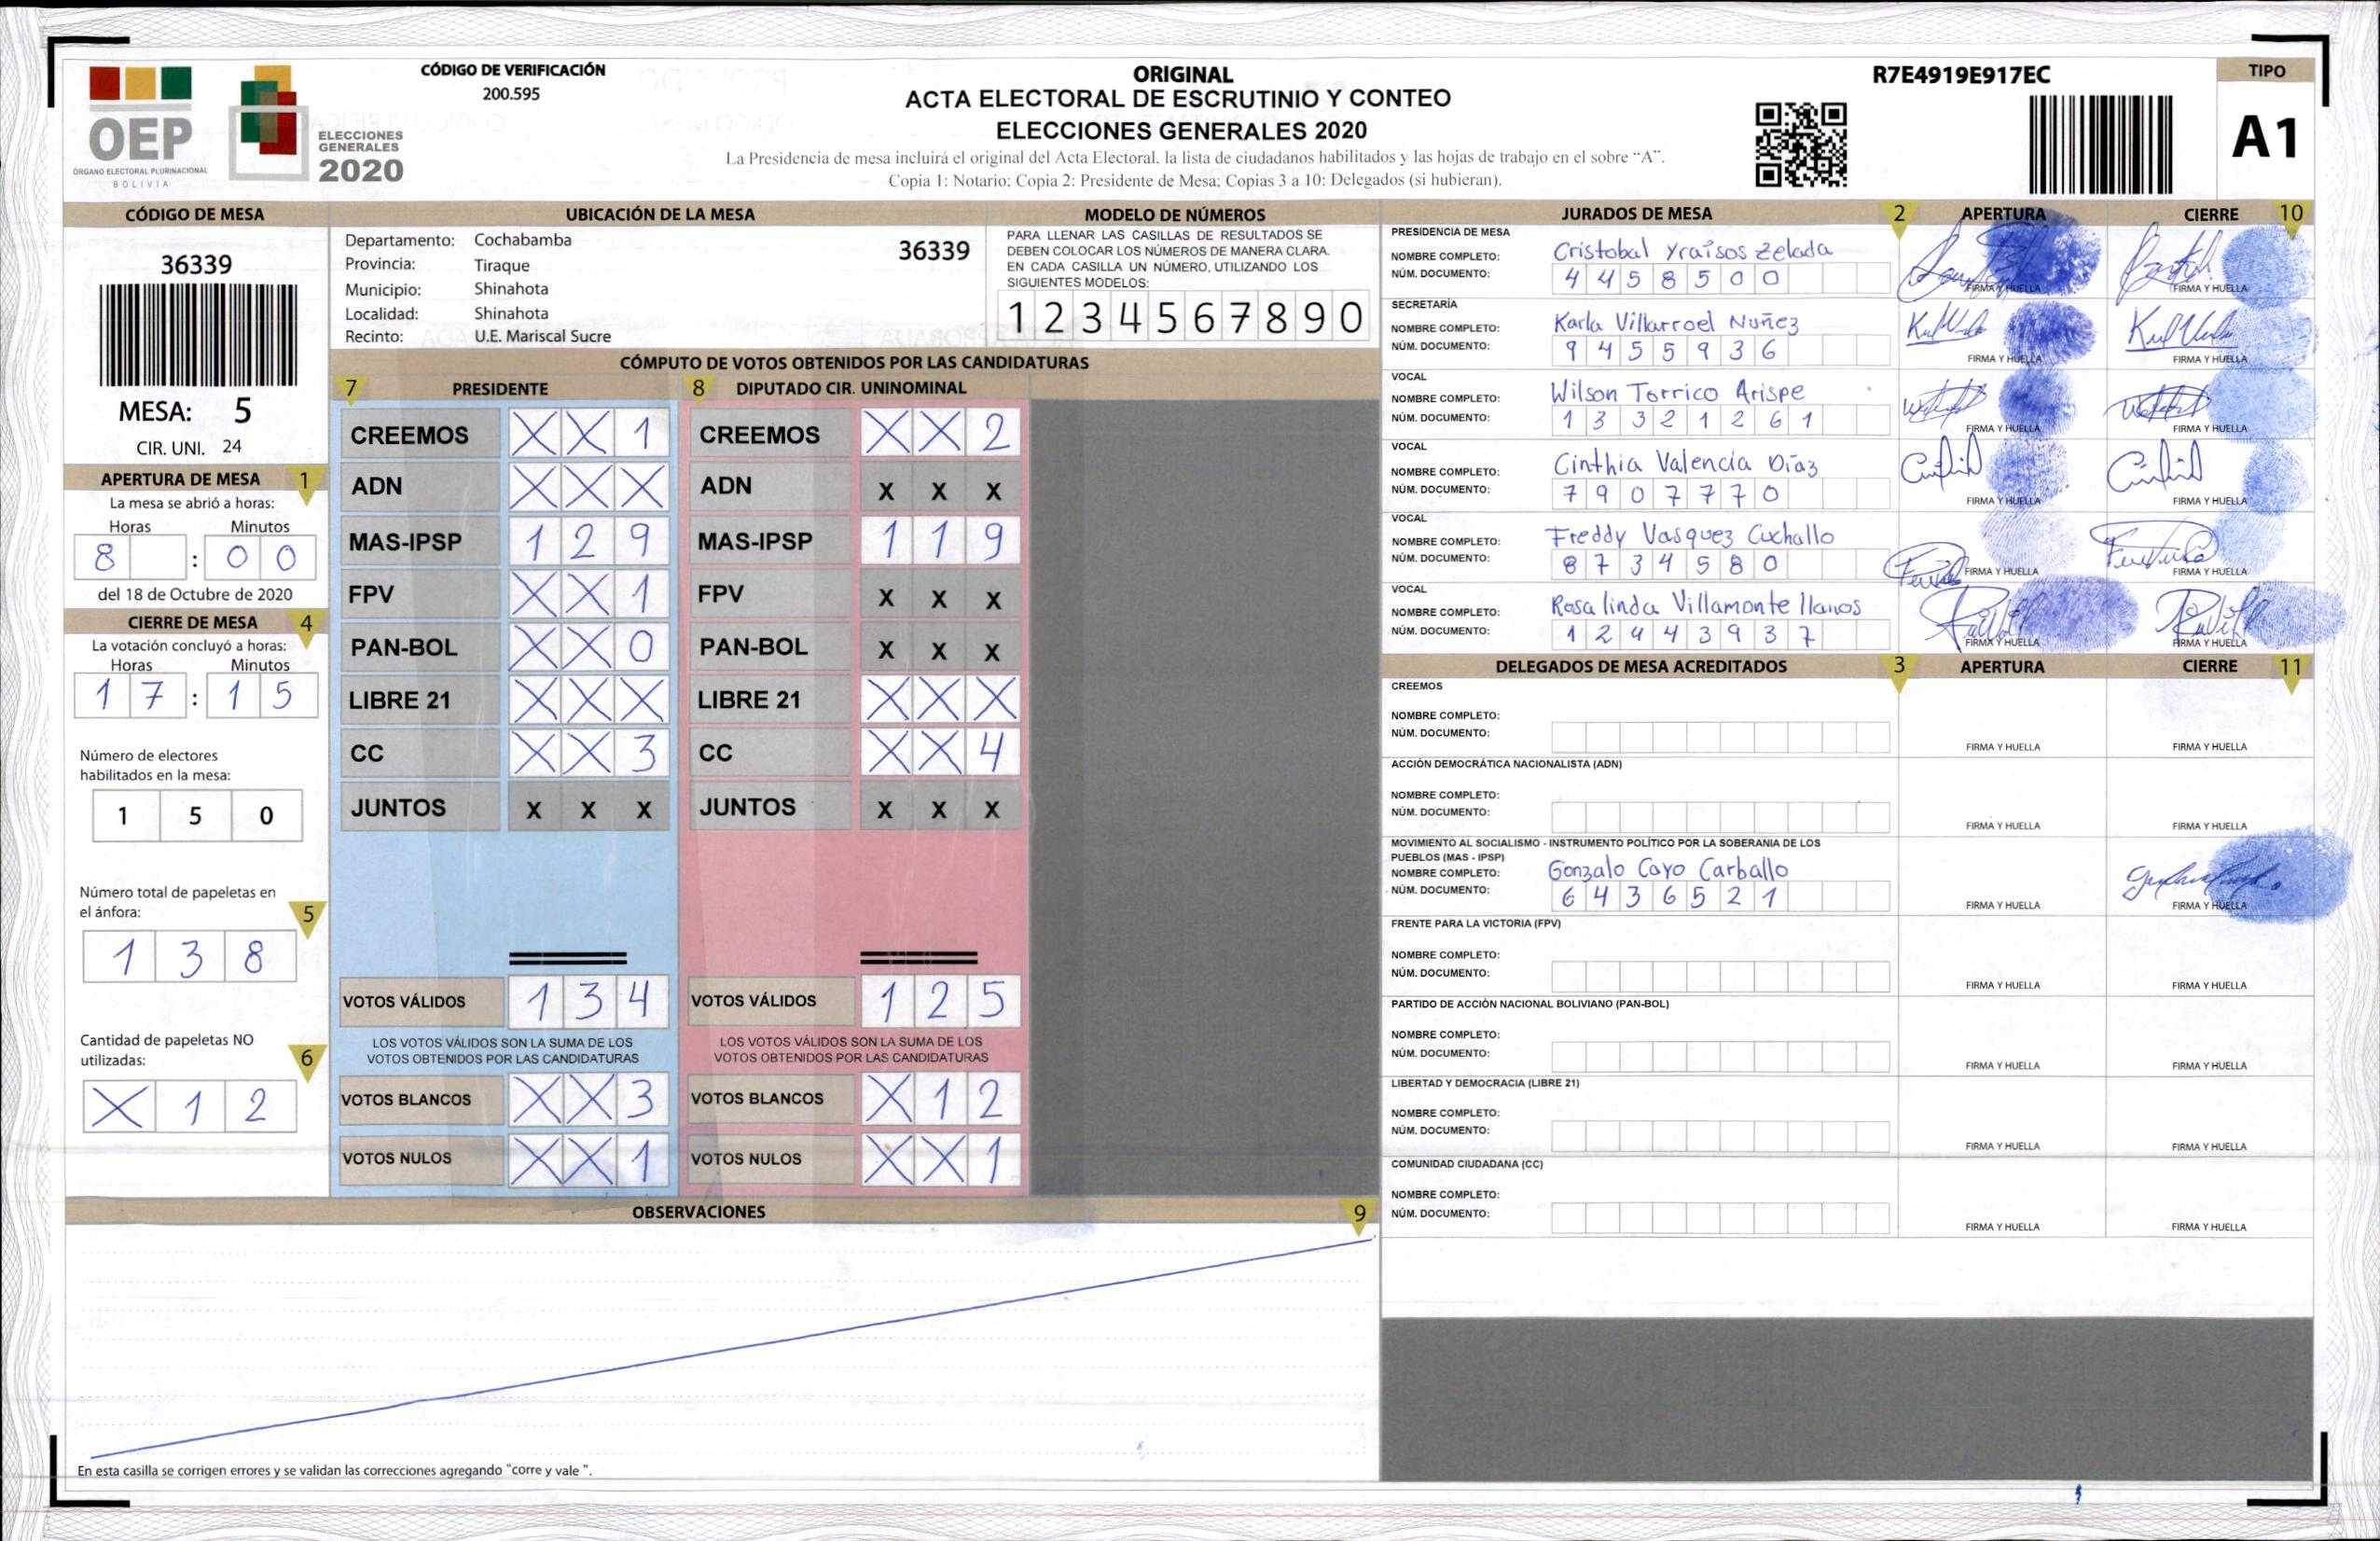 OEP
ÓRGANO ELECTORAL PLURINACIONAL
BOLIVIA
ELECCIONES
GENERALES
2020
CÓDIGO DE VERIFICACIÓN
200.595
ORIGINAL
ACTA ELECTORAL DE ESCRUTINIO Y CONTEO
ELECCIONES GENERALES 2020
La Presidencia de mesa incluirá el original del Acta Electoral, la lista de ciudadanos habilitados y las hojas de trabajo en el sobre "A".
Copia 1: Notario; Copia 2: Presidente de Mesa; Copias 3 a 10: Delegados (si hubieran).
R7E4919E917EC
TIPO
A1
CÓDIGO DE MESA
36339
MESA: 5
CIR. UNI. 24
APERTURA DE MESA 1
La mesa se abrió a horas:
Horas Minutos
8 : 0 0
del 18 de Octubre de 2020
CIERRE DE MESA 4
La votación concluyó a horas:
Horas Minutos
1 7 : 1 5
Número de electores
habilitados en la mesa:
1 5 0
Número total de papeletas en
el ánfora: 5
1 3 8
Cantidad de papeletas NO
utilizadas: 6
X 1 2
UBICACIÓN DE LA MESA
Departamento: Cochabamba 36339
Provincia: Tiraque
Municipio: Shinahota
Localidad: Shinahota
Recinto: U.E. Mariscal Sucre
MODELO DE NÚMEROS
PARA LLENAR LAS CASILLAS DE RESULTADOS SE
DEBEN COLOCAR LOS NÚMEROS DE MANERA CLARA.
EN CADA CASILLA UN NÚMERO, UTILIZANDO LOS
SIGUIENTES MODELOS:
1 2 3 4 5 6 7 8 9 0
CÓMPUTO DE VOTOS OBTENIDOS POR LAS CANDIDATURAS
7 PRESIDENTE 8 DIPUTADO CIR. UNINOMINAL
CREEMOS X X 1 CREEMOS X X 2
ADN X X X ADN X X X
MAS-IPSP 1 2 9 MAS-IPSP 1 1 9
FPV X X 1 FPV X X X
PAN-BOL X X 0 PAN-BOL X X X
LIBRE 21 X X X LIBRE 21 X X X
CC X X 3 CC X X 4
JUNTOS X X X JUNTOS X X X
VOTOS VÁLIDOS 1 3 4 VOTOS VÁLIDOS 1 2 5
LOS VOTOS VÁLIDOS SON LA SUMA DE LOS LOS VOTOS VÁLIDOS SON LA SUMA DE LOS
VOTOS OBTENIDOS POR LAS CANDIDATURAS VOTOS OBTENIDOS POR LAS CANDIDATURAS
VOTOS BLANCOS X X 3 VOTOS BLANCOS X 1 2
VOTOS NULOS X X 1 VOTOS NULOS X X 1
OBSERVACIONES 9
En esta casilla se corrigen errores y se validan las correcciones agregando "corre y vale ".
JURADOS DE MESA 2 APERTURA CIERRE 10
PRESIDENCIA DE MESA
NOMBRE COMPLETO: Cristobal Yraisos Zelada
NÚM. DOCUMENTO: 4 4 5 8 5 0 0
FIRMA Y HUELLA FIRMA Y HUELLA
SECRETARÍA
NOMBRE COMPLETO: Karla Villarroel Nuñez
NÚM. DOCUMENTO: 9 4 5 5 9 3 6
FIRMA Y HUELLA FIRMA Y HUELLA
VOCAL
NOMBRE COMPLETO: Wilson Torrico Arispe
NÚM. DOCUMENTO: 1 3 3 2 1 2 6 1
FIRMA Y HUELLA FIRMA Y HUELLA
VOCAL
NOMBRE COMPLETO: Cinthia Valencia Díaz
NÚM. DOCUMENTO: 7 9 0 7 7 7 0
FIRMA Y HUELLA FIRMA Y HUELLA
VOCAL
NOMBRE COMPLETO: Freddy Vasquez Cuchallo
NÚM. DOCUMENTO: 8 7 3 4 5 8 0
FIRMA Y HUELLA FIRMA Y HUELLA
VOCAL
NOMBRE COMPLETO: Rosalinda Villamonte llanos
NÚM. DOCUMENTO: 1 2 4 4 3 9 3 7
FIRMA Y HUELLA FIRMA Y HUELLA
DELEGADOS DE MESA ACREDITADOS 3 APERTURA CIERRE 11
CREEMOS
NOMBRE COMPLETO:
NÚM. DOCUMENTO:
FIRMA Y HUELLA FIRMA Y HUELLA
ACCIÓN DEMOCRÁTICA NACIONALISTA (ADN)
NOMBRE COMPLETO:
NÚM. DOCUMENTO:
FIRMA Y HUELLA FIRMA Y HUELLA
MOVIMIENTO AL SOCIALISMO - INSTRUMENTO POLÍTICO POR LA SOBERANIA DE LOS
PUEBLOS (MAS - IPSP)
NOMBRE COMPLETO: Gonzalo Cayo Carballo
NÚM. DOCUMENTO: 6 4 3 6 5 2 1
FIRMA Y HUELLA FIRMA Y HUELLA
FRENTE PARA LA VICTORIA (FPV)
NOMBRE COMPLETO:
NÚM. DOCUMENTO:
FIRMA Y HUELLA FIRMA Y HUELLA
PARTIDO DE ACCIÓN NACIONAL BOLIVIANO (PAN-BOL)
NOMBRE COMPLETO:
NÚM. DOCUMENTO:
FIRMA Y HUELLA FIRMA Y HUELLA
LIBERTAD Y DEMOCRACIA (LIBRE 21)
NOMBRE COMPLETO:
NÚM. DOCUMENTO:
FIRMA Y HUELLA FIRMA Y HUELLA
COMUNIDAD CIUDADANA (CC)
NOMBRE COMPLETO:
NÚM. DOCUMENTO:
FIRMA Y HUELLA FIRMA Y HUELLA